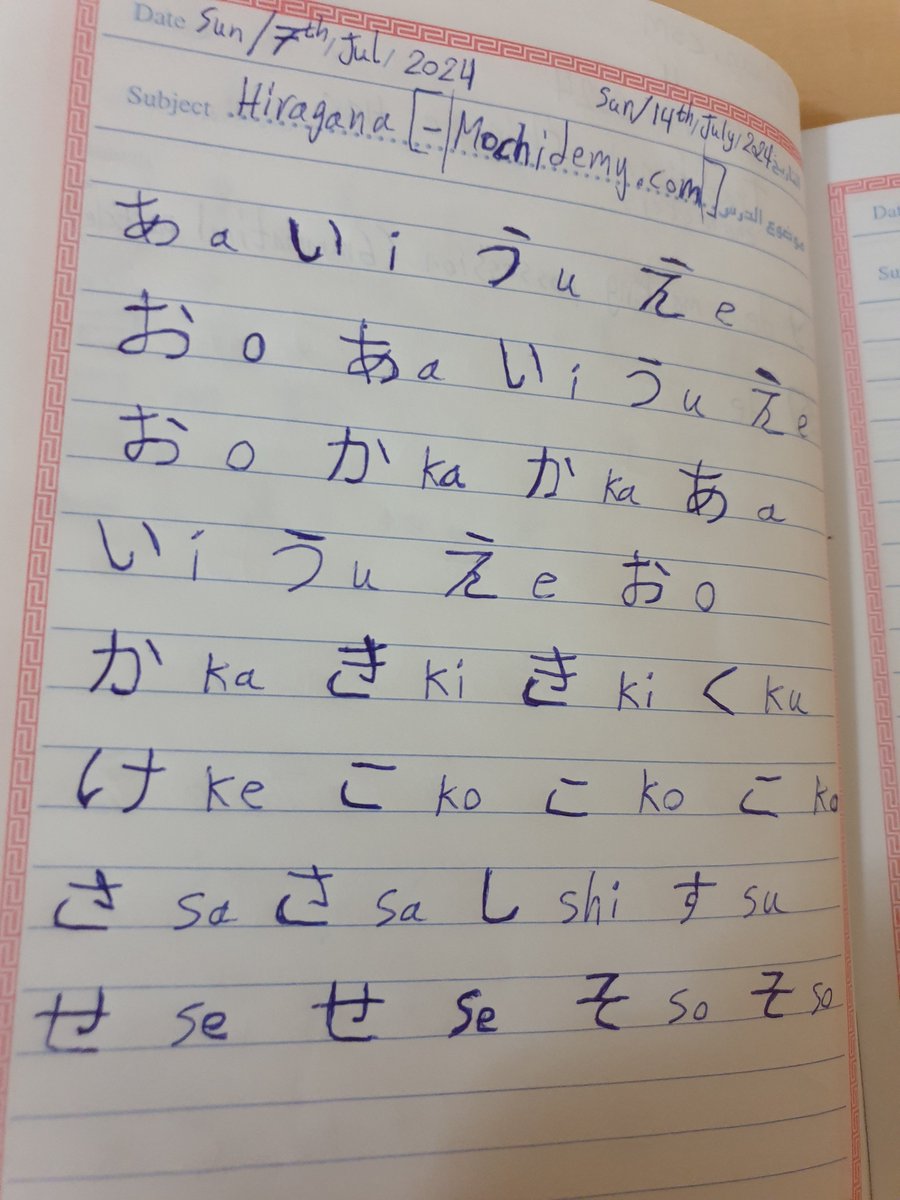 Date Sun/7th, Jul, 2024
Sun/14th, July, 2024 التاريخ
Subject Hiragana [-|Mochidemy.com] موضوع الدرس
あ a い i う u え e
お o あ a い i う u え e
お o か ka か ka あ a
い i う u え e お o
か ka き ki き ki く ku
け ke こ ko こ ko こ ko
さ sa さ sa し shi す su
せ se せ se そ so そ so
Dat
Su